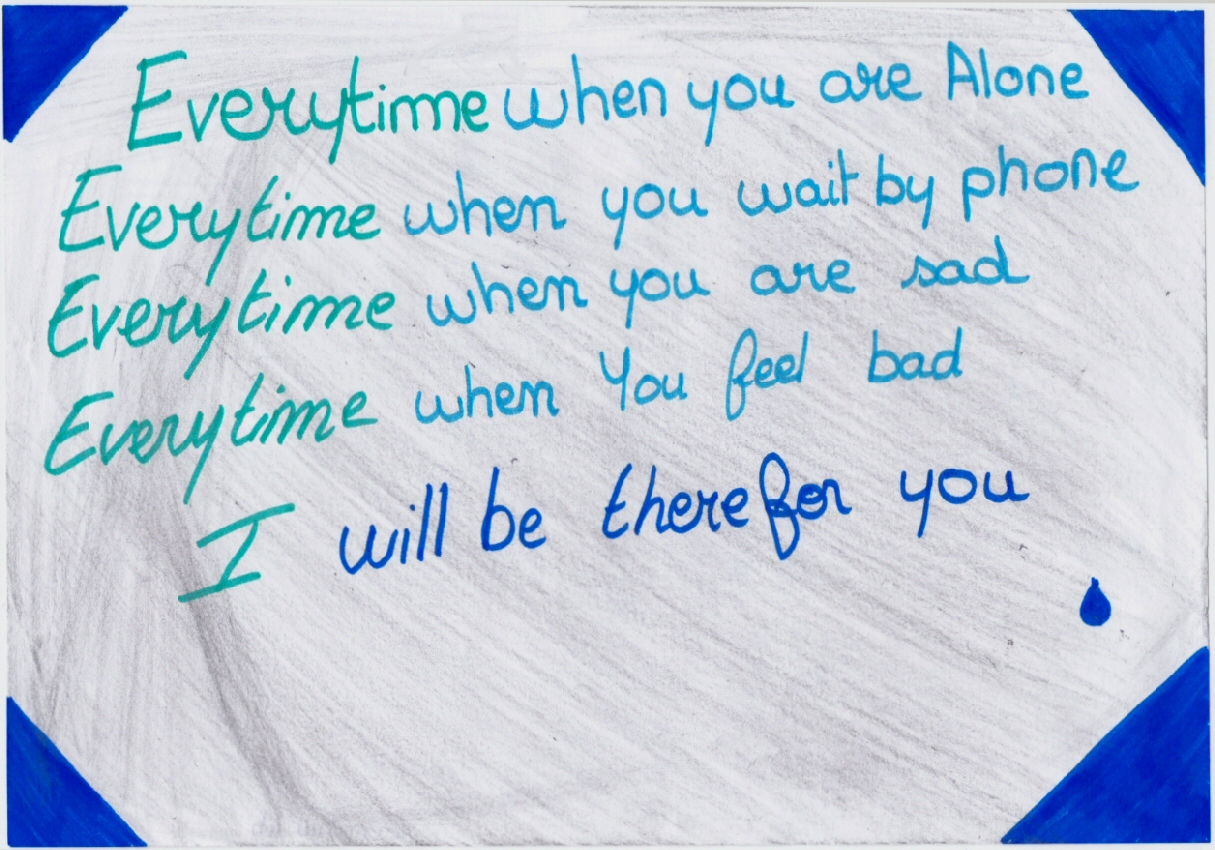 Everytime when you are Alone
Everytime when you wait by phone
Everytime when you are sad
Everytime when You feel bad
I will be there for you